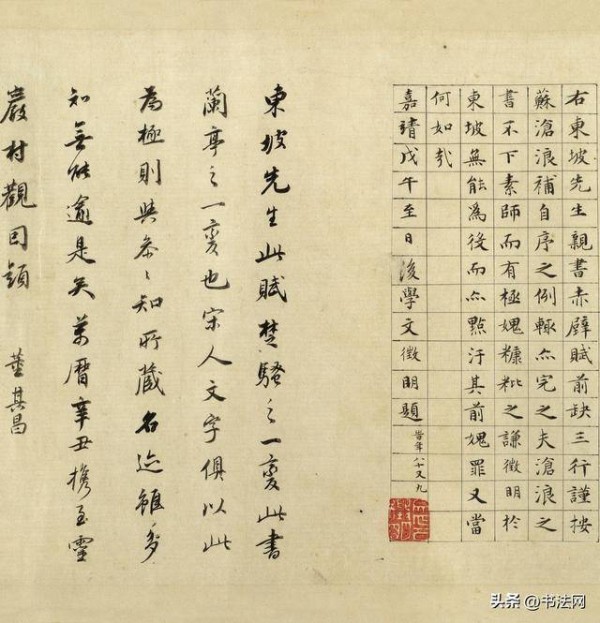 右東坡先生親書赤壁賦前缺三行謹按
蘇滄浪補自序之例輒亦完之夫滄浪之
書不下素師而有極媿糠粃之謙徵明於
東坡無能為役而亦點汙其前媿罪又當
何如哉
嘉靖戊午至日後學文徵明題 旹年八十又九
東坡先生此賦楚騷之一變此書
蘭亭之一變也宋人文字俱以此
為極則與參〻知所藏名迹雖多
知無能逾是矣萬曆辛丑攜至靈
巖村觀因題 董其昌
头条 @书法网